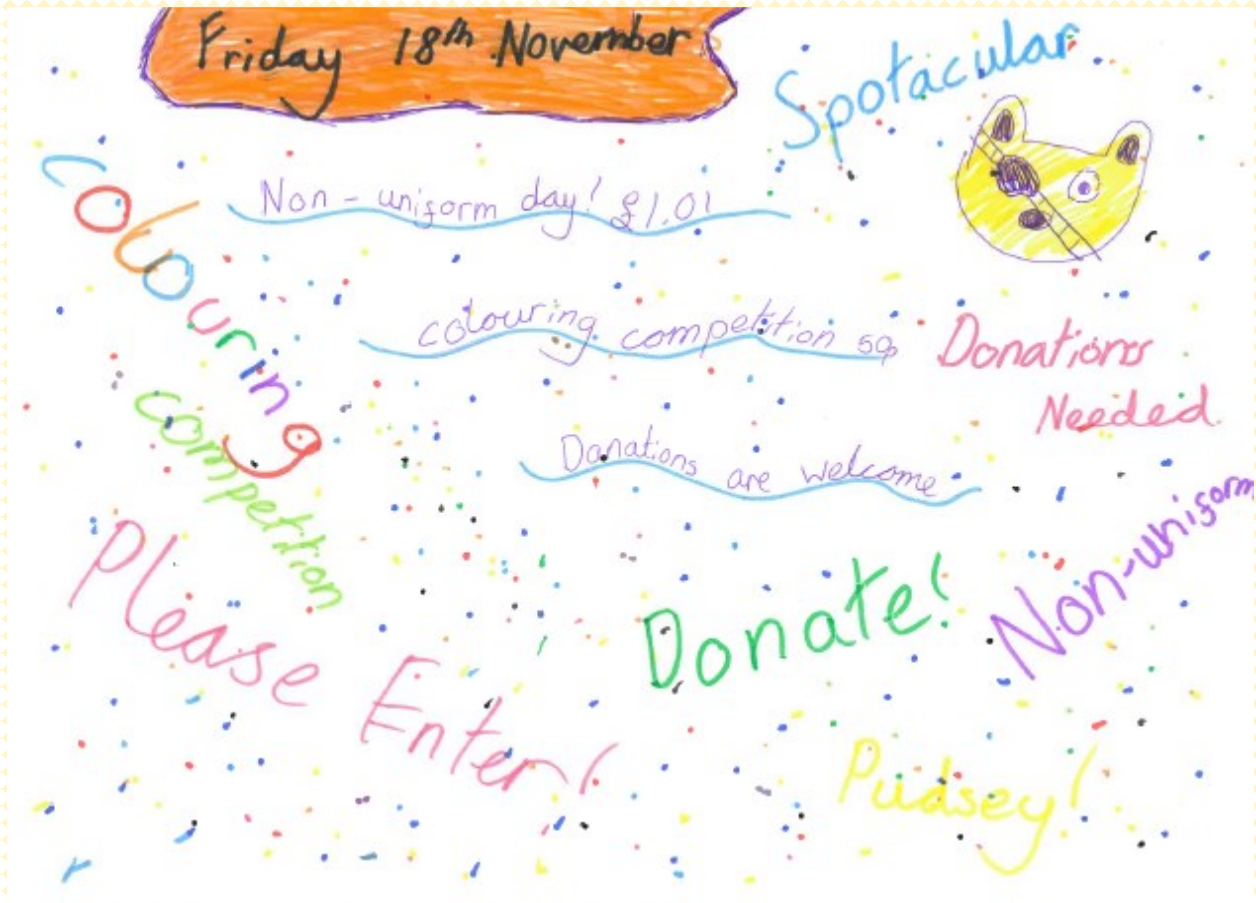 Friday 18th November
Spotacular
Non-uniform day! £1.01
colouring competition 50p
Donations are welcome
Donations
Needed
Colouring
competition
Please Enter!
Donate!
Non-uniform
Pudsey!